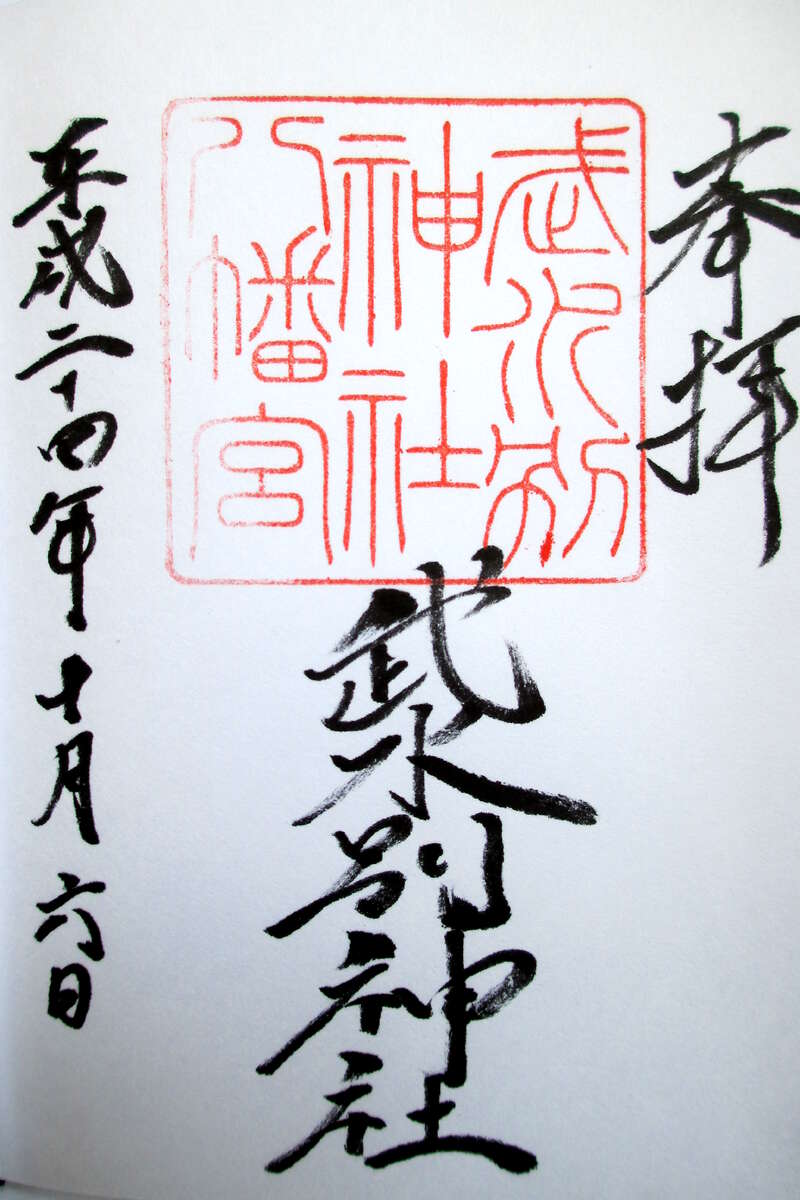 奉拝
武水別
神社
八幡宮
武水別神社
平成二十四年十月六日